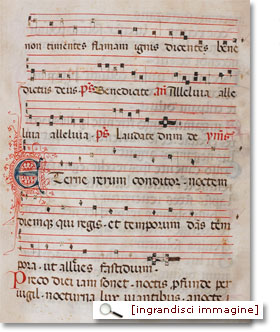 non timentes flamam ignis dicentes bene
dictus deus. ps. Benedicite an. Alleluia alle
luia alleluia. ps. Laudate dnm de
Eterne rerum conditor. noctem
diemque qui regis. et temporum das tem
pora. ut alleues fastidium.
Preco diei iam sonet. noctis pfunde per
uigil. nocturna lux uiantibus. a nocte
[ingrandisci immagine]